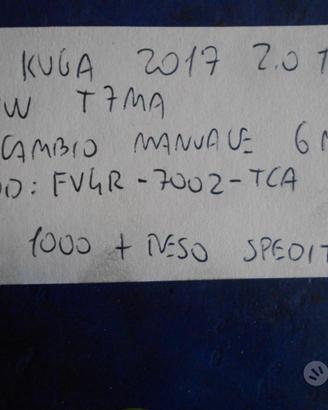 KUGA 2017 2.0 T
W T7MA
CAMBIO MANUALE 6 M
D: FV4R-7002-TCA
1000 + RESO SPEDIT